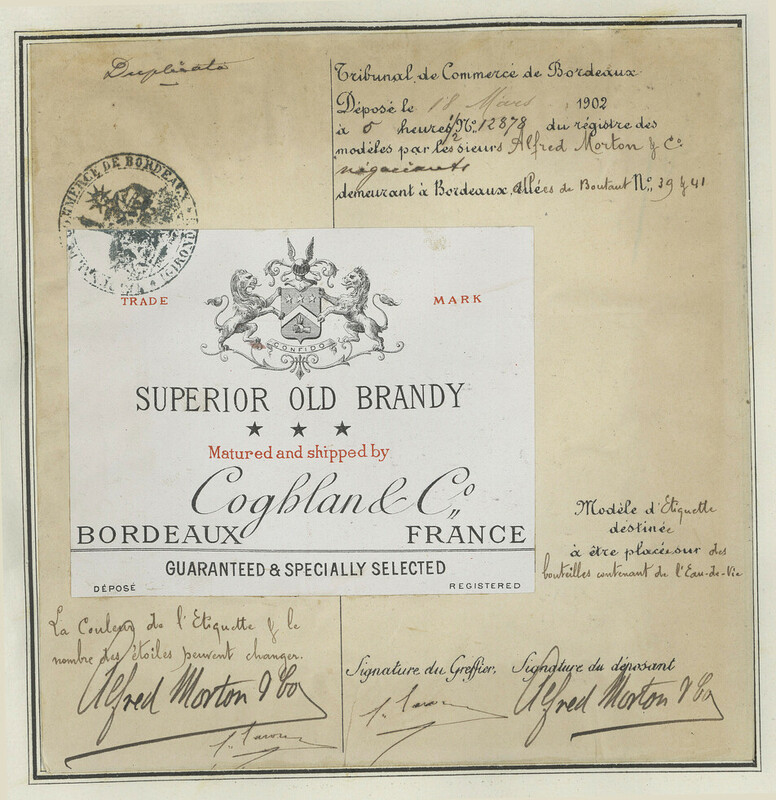 Duplicata
Tribunal de Commerce de Bordeaux
Déposé le 18 Mars 1902
à 5 heures 1/2 No. 12878 du régistre des
modèles par les sieurs Alfred Morton & Co.
négociants
demeurant à Bordeaux, Allées de Boutaut No. 39 & 41
COMMERCE DE BORDEAUX
GIRONDE
TRADE MARK
CONFIDO
SUPERIOR OLD BRANDY
★ ★ ★
Matured and shipped by
Coghlan & Co.,
BORDEAUX FRANCE
GUARANTEED & SPECIALLY SELECTED
DÉPOSÉ REGISTERED
Modèle d'Etiquette
destinée
à être placée sur des
bouteilles contenant de l'Eau-de-Vie
La Couleur de l'Etiquette & le
nombre des étoiles peuvent changer.
Alfred Morton & Co
Signature du Greffier, Signature du déposant
Alfred Morton & Co